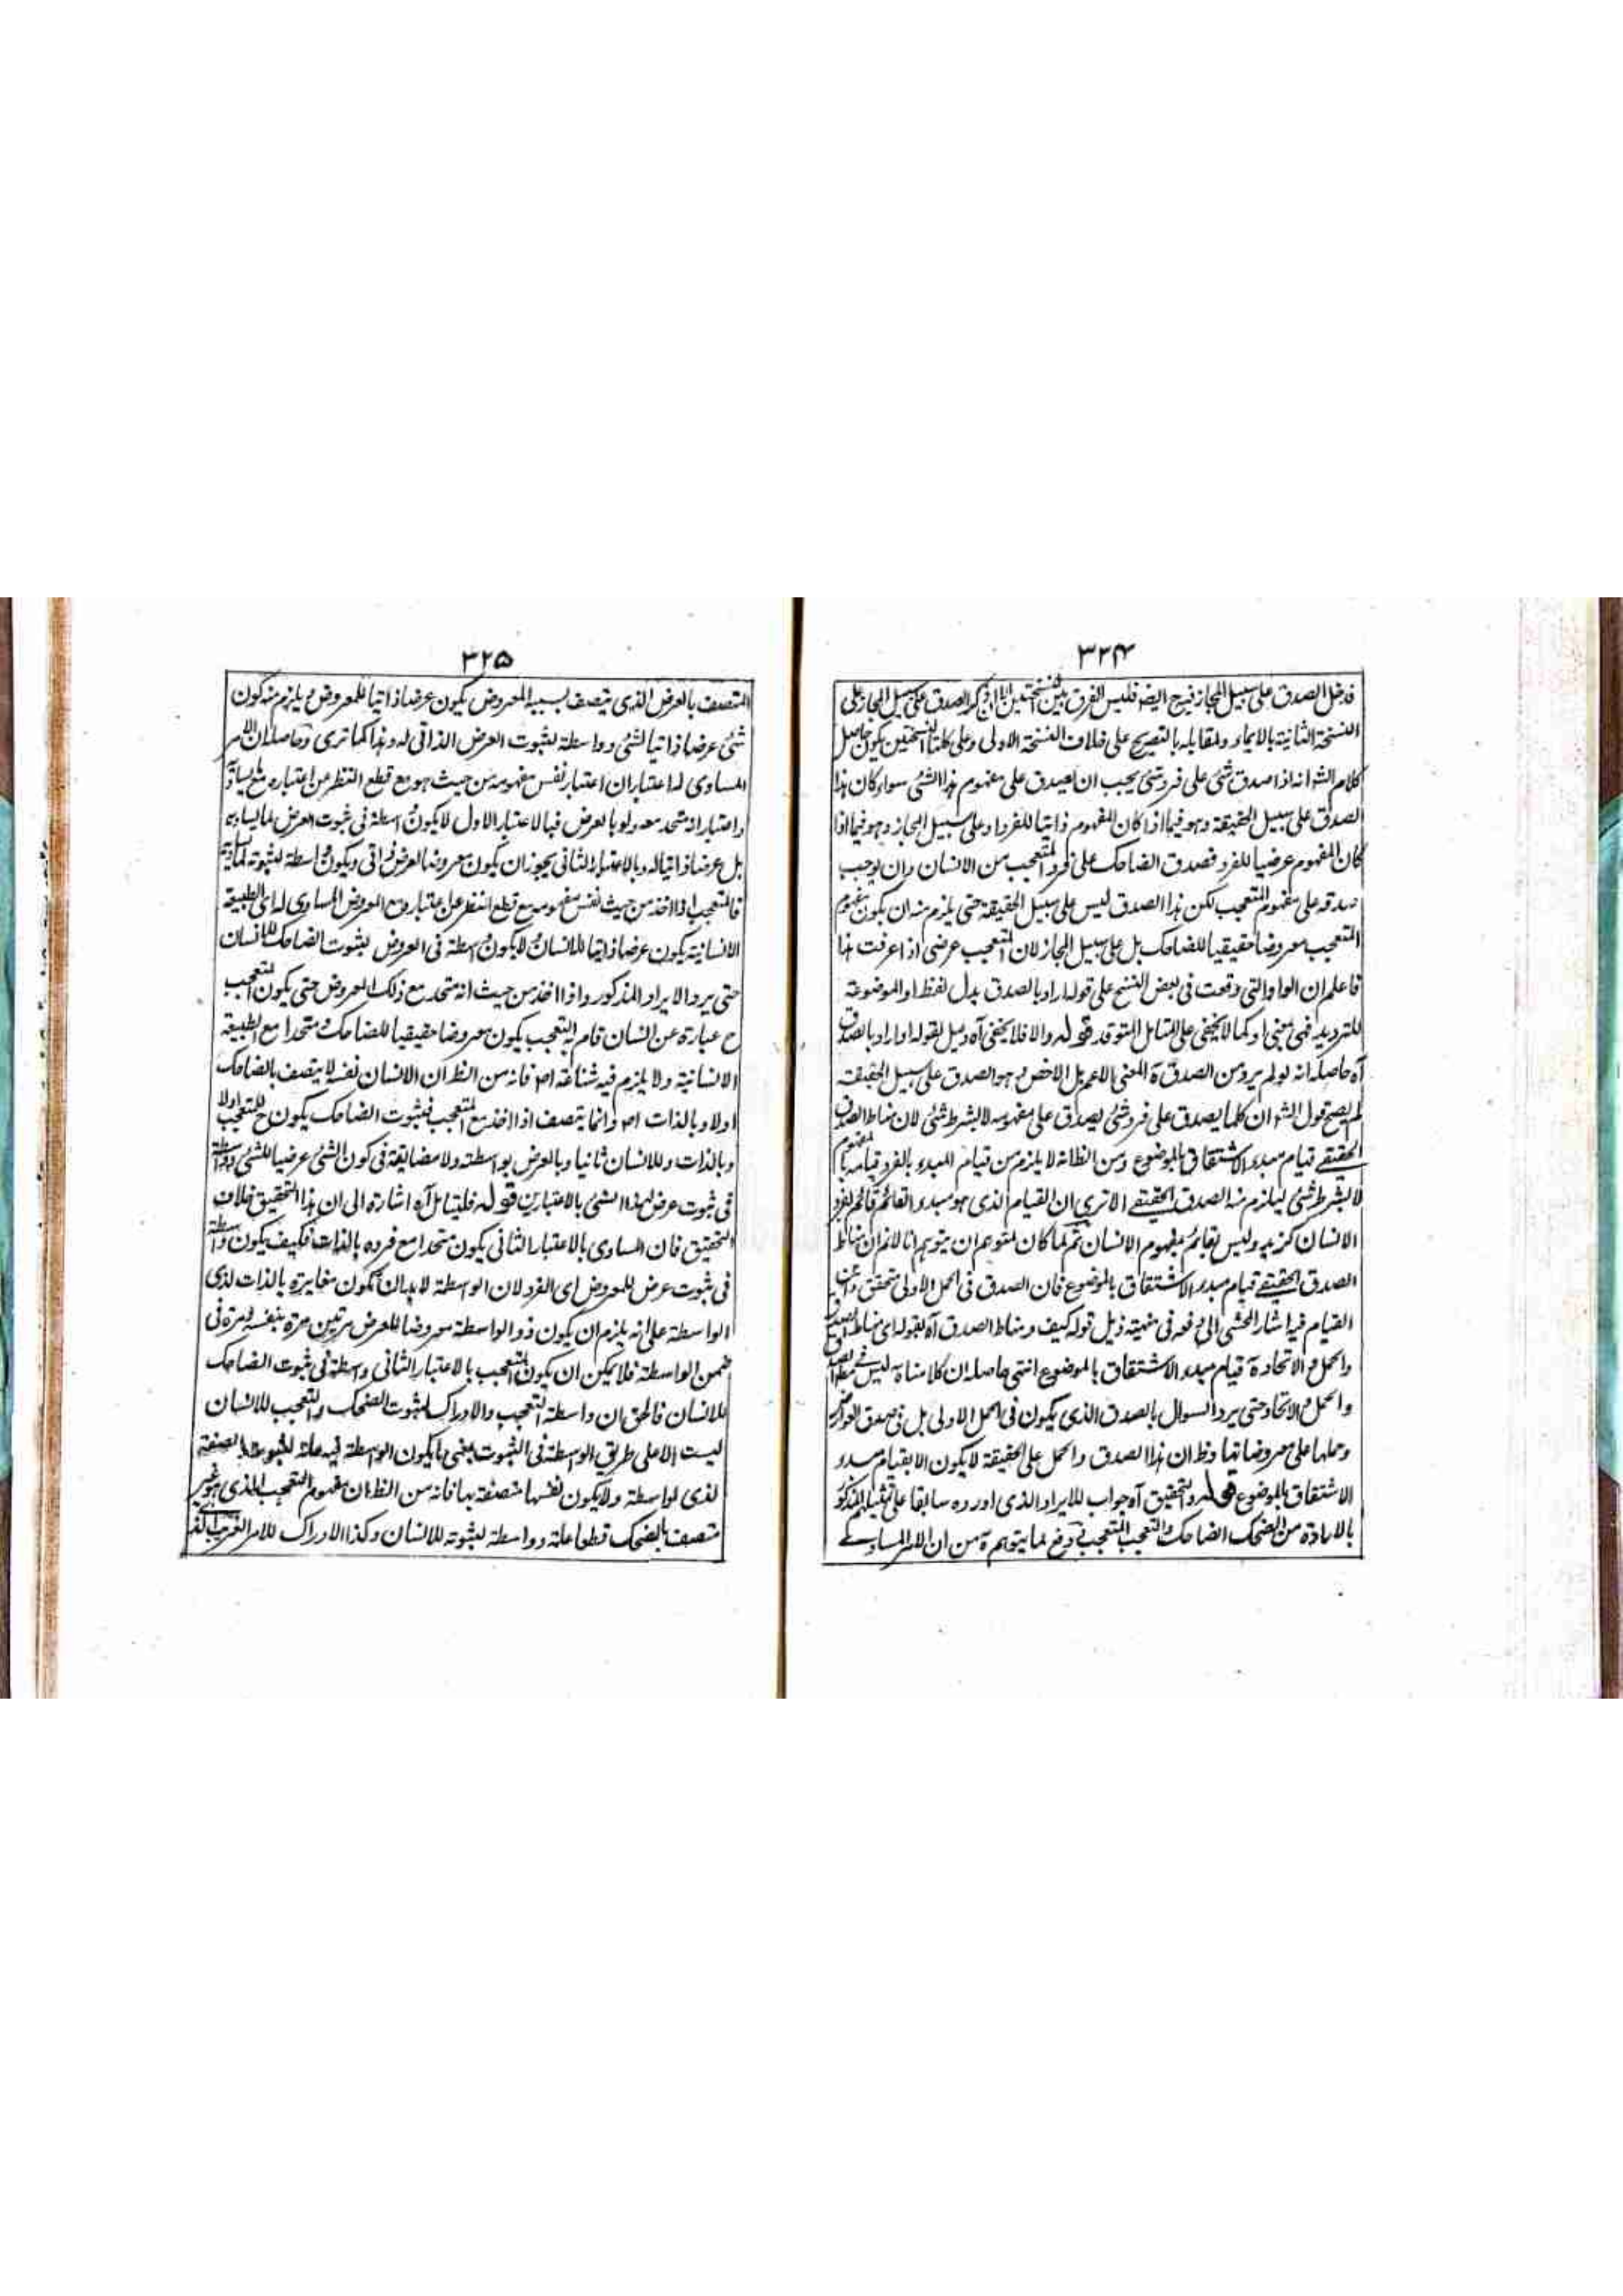 ٣٢٤
فدخل الصدق على سبيل المجاز فيرجع ايضه فليس الفرق بين النسختين الا ان ذكر الصدق على سبيل المجاز على
النسخة الثانية بالايماء ولمقابله بالتصريح على خلاف النسخة الاولى وعلى كلتا النسختين يكون حاصل
كلام الشه انه اذا صدق شئ على فرد شئ يجب ان يصدق على مفهوم هذا الشئ سواء كان هذا
الصدق على سبيل الحقيقة وهو فيما اذا كان المفهوم ذاتيا للفرد او على سبيل المجاز وهو فيما اذا
كان المفهوم عرضيا للفرد فصدق الضاحك على فرد المتعجب من الانسان وان يوجب
صدقه على مفهوم المتعجب لكن هذا الصدق ليس على سبيل الحقيقة حتى يلزم منه ان يكون مفهوم
المتعجب معروضا حقيقيا للضاحك بل على سبيل المجاز لان المتعجب عرضى اذا عرفت هذا
فاعلم ان الواو التى وقعت فى بعض النسخ على قوله اراد بالصدق بدل لفظ او الموضوعة
للترديد فهى بمعنى او كما لا يخفى على المتامل المتوقد قوله والا فلا يخفى آه دليل لقوله او اراد بالصدق
آه حاصله انه لو لم يرد من الصدق ة المعنى الاعم بل الاخص وهو الصدق على سبيل الحقيقة
لم يصح قول الشه ان كلما يصدق على فرد شئ يصدق على مفهومه لا بشرط شئ لان مناط الصدق
الحقيقے قيام مبدء الاشتقاق بالموضوع ومن الظانه لا يلزم من قيام المبدء بالفرد قيامه بالمفهوم
لا بشرط شئ ليلزم منه الصدق الحقيقے الا ترى ان القيام الذى هو مبدء القائم قائم لفرد
الانسان كزيد وليس بقائم بمفهوم الانسان ثم لما كان لمتوهم ان يتوهم انا لا نم ان مناط
الصدق الحقيقے قيام مبدء الاشتقاق بالموضوع فان الصدق فى الحمل الاولى متحقق
القيام فيه اشار المحشى الى دفعه فى منهيته ذيل قوله كيف ومناط الصدق آه بقوله اى مناط الصدق
والحمل والاتحاد ة قيام مبدء الاشتقاق بالموضوع انتهى حاصله ان كلامنا ة ليس فى مطلق الصدق
والحمل والاتحاد حتى يرد السوال بالصدق الذى يكون فى الحمل الاولى بل فى صدق العوارض
وحملها على معروضاتها وظ ان هذا الصدق والحمل على الحقيقة لا يكون الا بقيام مبدء
الاشتقاق بالموضوع قوله والتحقيق آه جواب للايراد الذى اورده سابقا على تمثيلهم المذكور
بالارادة من الضحك الضاحك والتعجب المتعجب ودفع لما يتوهم ة من ان الامر المساوے
٣٢٥
المتصف بالعرض الذى يتصف بسببه المعروض يكون عرضا ذاتيا للمعروض ويلزم منه كون
شئ عرضا ذاتيا لشئ وواسطة لثبوت العرض الذاتى له وهذا كما ترى وحاصله ان الامر
المساوى له اعتباران اعتبار نفس مفهومه من حيث هو مع قطع النظر عن اعتباره مع ما يساويه
واعتبار انه متحد معه ولو بالعرض فبالاعتبار الاول لا يكون واسطة فى ثبوت العرض لما يساويه
بل عرضا ذاتيا له وبالاعتبار الثانى يجوز ان يكون معروضا للعرض الذاتى ويكون واسطة لثبوته لما يساويه
فالمتعجب اذا اخذ من حيث نفس مفهومه مع قطع النظر عن اعتباره مع المعروض المساوى له اى الطبيعة
الانسانية يكون عرضا ذاتيا للانسان ولا يكون واسطة فى العروض بثبوت الضاحك للانسان
حتى يرد الايراد المذكور واذا اخذ من حيث انه متحد مع ذلك المعروض حتى يكون المتعجب
ح عبارة عن انسان قام به التعجب يكون معروضا حقيقيا للضاحك ومتحدا مع الطبيعة
الانسانية ولا يلزم فيه شناعة اصه فانه من الظ ان الانسان نفسه لا يتصف بالضاحك
اولا وبالذات اصه وانما يتصف اذا اخذ مع المتعجب فثبوت الضاحك يكون ح للمتعجب اولا
وبالذات وللانسان ثانيا وبالعرض بواسطته ولا مضايقة فى كون الشئ عرضيا للشئ وواسطة
فى ثبوت عرض لهذا الشئ بالاعتبارين قوله فليتامل آه اشارة الى ان هذا التحقيق خلاف
التحقيق فان المساوى بالاعتبار الثانى يكون متحدا مع فرده بالذات فكيف يكون واسطة
فى ثبوت عرض للمعروض اى الفرد لان الواسطة لابد ان تكون مغايرة بالذات لذى
الواسطة على انه يلزم ان يكون ذو الواسطة معروضا للعرض مرتين مرة بنفسه ومرة فى
ضمن الواسطة فلا يمكن ان يكون المتعجب بالاعتبار الثانى واسطة فى ثبوت الضاحك
للانسان فالحق ان واسطة التعجب والادراك لثبوت الضحك والتعجب للانسان
ليست الا على طريق الواسطة فى الثبوت بمعنى ما يكون الواسطة فيه علة لثبوت الصفة
لذى الواسطة ولا يكون نفسها متصفة بها فانه من الظ ان مفهوم التعجب الذى هو غير
متصف بالضحك قطعا علة وواسطة لثبوته للانسان وكذا الادراك للامر الغريب